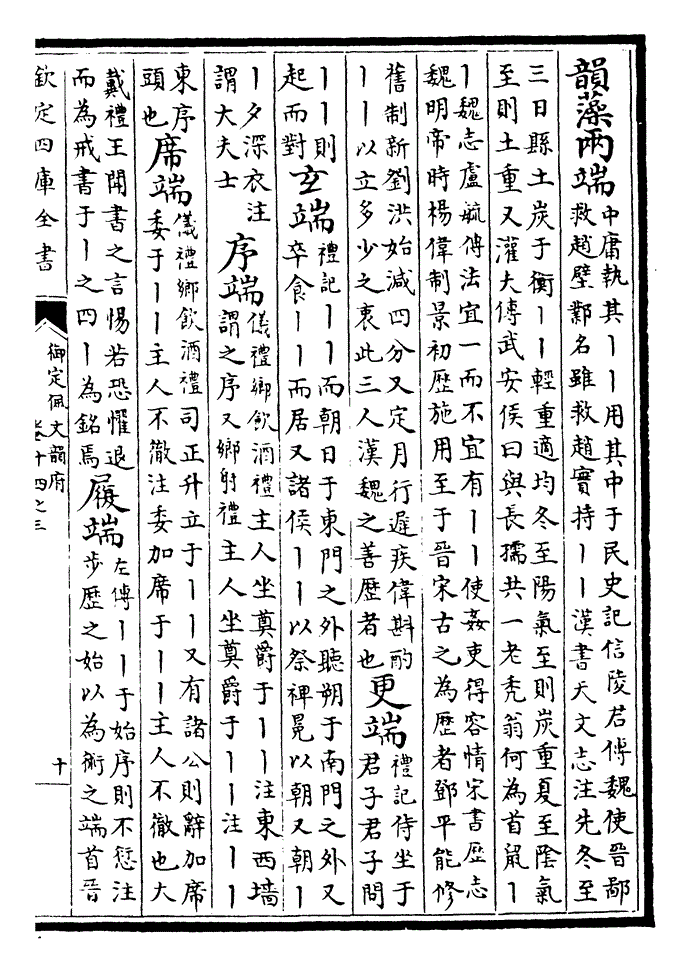 韻藻兩端
中庸執其丨丨用其中于民史記信陵君傳魏使晉鄙
救趙壁鄴名雖救趙實持丨丨漢書天文志注先冬至
三日縣土炭于衡丨丨輕重適均冬至陽氣至則炭重夏至陰氣
至則土重又灌大傳武安侯曰與長孺共一老禿翁何為首鼠丨
丨魏志盧毓傳法宜一而不宜有丨丨使姦吏得容情宋書歷志
魏明帝時楊偉制景初歷施用至于晉宋古之為歷者鄧平能修
舊制新劉洪始減四分又定月行遲疾偉斟酌
丨丨以立多少之衷此三人漢魏之善歷者也
更端
禮記侍坐于
君子君子問
丨丨則
起而對
玄端
禮記丨丨而朝日于東門之外聽朔于南門之外又
卒食丨丨而居又諸侯丨丨以祭裨冕以朝又朝丨
丨夕深衣注
謂大夫士
序端
儀禮鄉飲酒禮主人坐奠爵于丨丨注東西墻
謂之序又鄉射禮主人坐奠爵于丨丨注丨丨
東序
頭也
席端
儀禮鄉飲酒禮司正升立于丨丨又有諸公則辭加席
委于丨丨主人不徹注委加席于丨丨主人不徹也大
戴禮王聞書之言惕若恐懼退
而為戒書于丨之四丨為銘焉
履端
左傳丨丨于始序則不愆注
步歷之始以為術之端首晉
欽定四庫全書
御定佩文韻府
卷十四之三
十